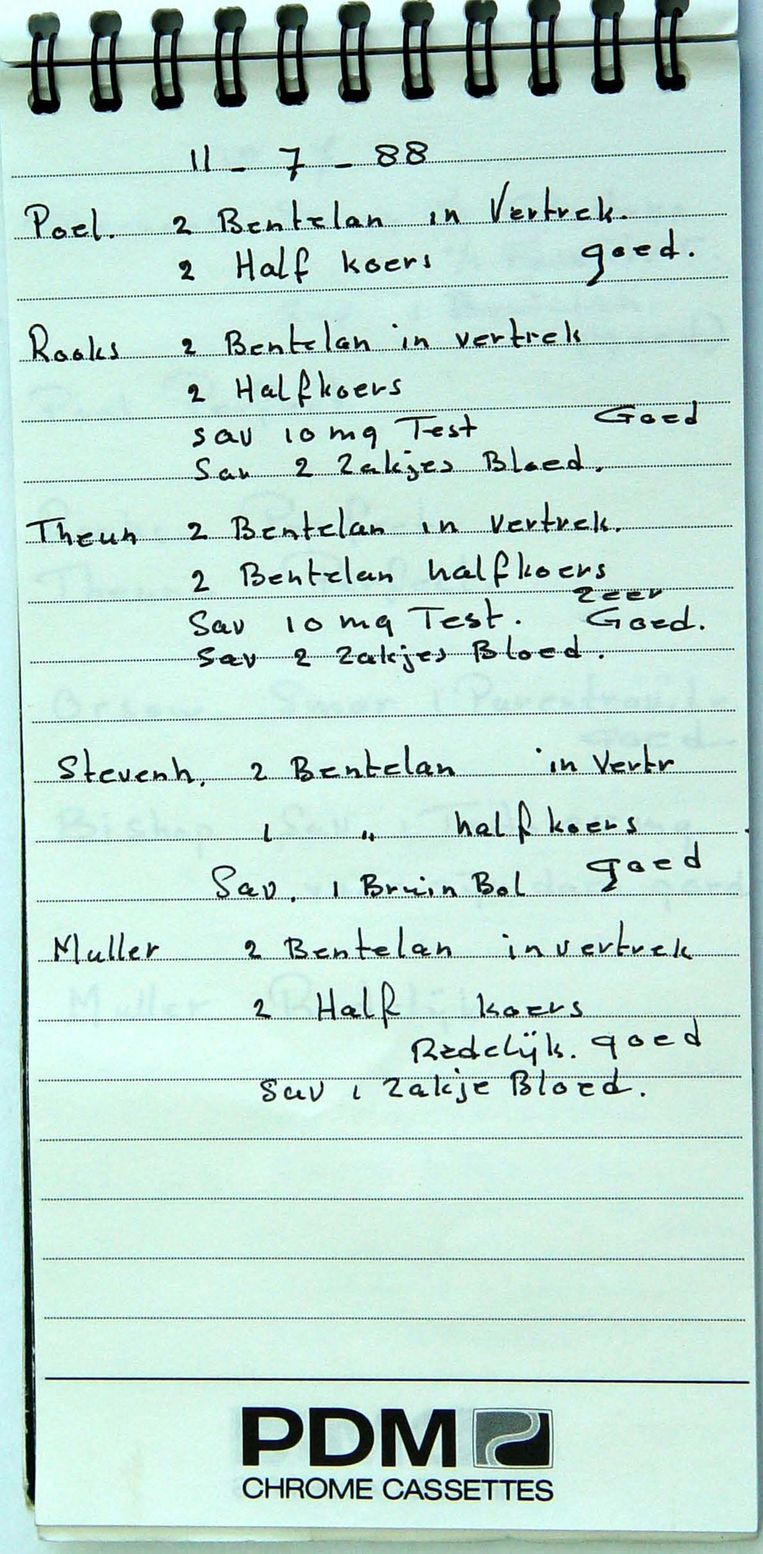 11 - 7 - 88
Poel. 2 Bentelan in Vertrek.
2 Half koers goed.
Rooks 2 Bentelan in vertrek
2 Halfkoers
sav 10 mg Test Goed
Sav 2 Zakjes Bloed.
Theun 2 Bentelan in vertrek.
2 Bentelan halfkoers
Zeer
Sav 10 mg Test. Goed.
Sav 2 Zakjes Bloed.
Stevenh. 2 Bentelan in Vertr
1 " halfkoers
Sav. 1 Bruin Bol goed
Muller 2 Bentelan in vertrek
2 Half koers
Redelijk. goed
Sav 1 Zakje Bloed.
PDM
CHROME CASSETTES